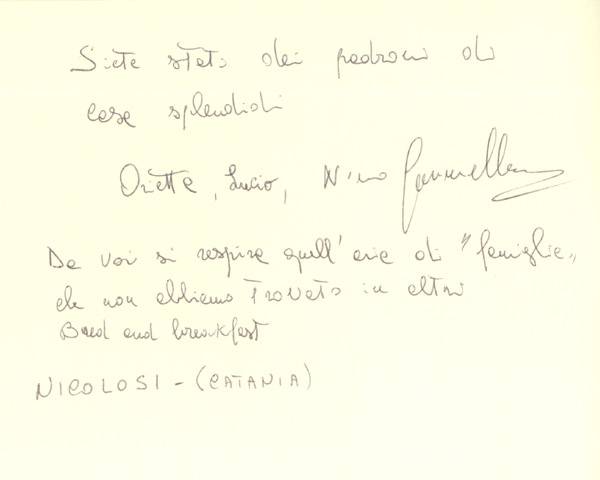 Siete stati dei padroni di
casa splendidi
Oriette, Lucio, Nino
Da voi si respira quell'aria di "famiglia"
che non abbiamo trovato in altri
Bred and breakfast
NICOLOSI - (CATANIA)